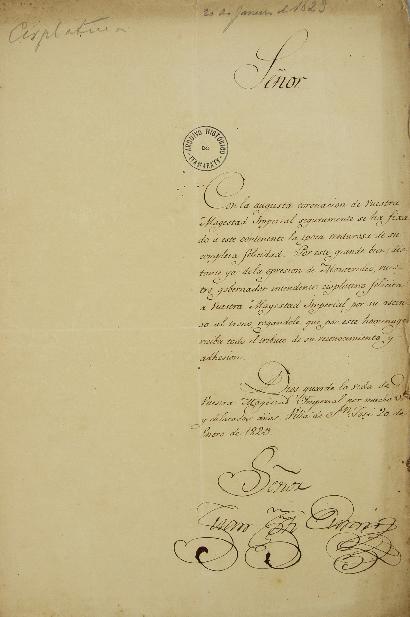 20 de Janeiro de 1823
Cisplatina
Señor
ARCHIVO HISTORICO
DO
ITAMARATY
Con la augusta coronacion de Vuestra
Magestad Imperial seguramente se ha fixa
do a este continente la epoca venturosa de su
completa felicidad. Por este grande bien, dis
tante yo de la opresion de Montevideo, como
gobernador intendente cisplatino felicito
a Vuestra Magestad Imperial por su ascen
so al trono, rogandole que por este homenage
reciba todo el tributo de su reconocimiento y
adhesion.
Dios guarde la vida de
Vuestra Magestad Imperial por muchos
y dilatados años. Villa de Sn. José 20 de
Enero de 1823
Señor
Juan José Durán